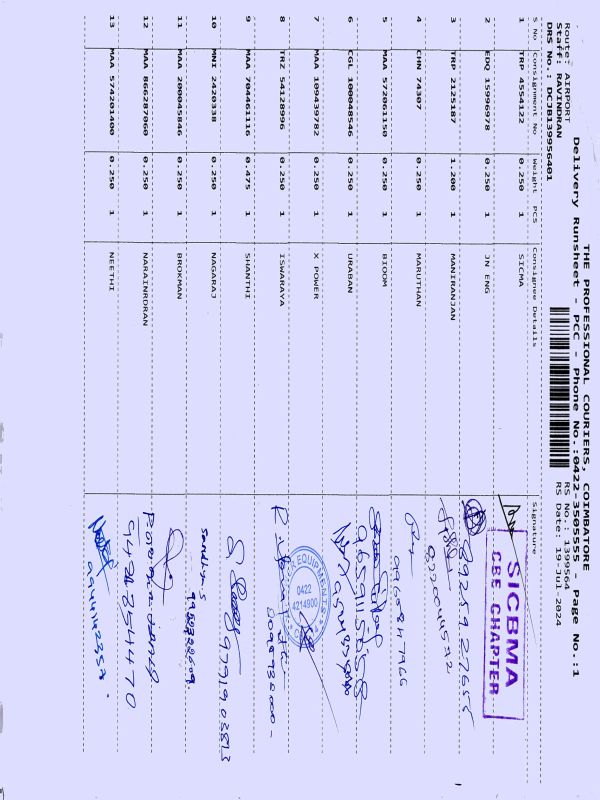 THE PROFESSIONAL COURIERS, COIMBATORE
Delivery Runsheet - PCC - Phone No.:0422-3505555 - Page No.:1
Route: AIRPORT
Staff: RAVINDRAN
DRS No.: DCJB139956401
RS No.: 1399564
RS Date: 19-Jul-2024
S No Consignment No Weight PCS Consignee Details Signature
1 TRP 4554122 0.250 1 SICMA
SICBMA
CBE CHAPTER
2 EDQ 15996978 0.250 1 JN ENG
3 TRP 2125187 1.200 1 MANIRANJAN
4 CHN 74307 0.250 1 MARUTHAN
5 MAA 572061150 0.250 1 BIOOM
6 CGL 100048546 0.250 1 URABAN
7 MAA 109439782 0.250 1 X POWER
EQUIPMENTS
0422
4214900
8 TRZ 54128996 0.250 1 ISWARAYA
9 MAA 704461116 0.475 1 SHANTHI
9791903873
10 MNI 2420338 0.250 1 NAGARAJ
Sandhya.S
11 MAA 200045846 0.250 1 BROKMAN
12 MAA 866287060 0.250 1 NARAINRDRAN
13 MAA 574201400 0.250 1 NEETHI